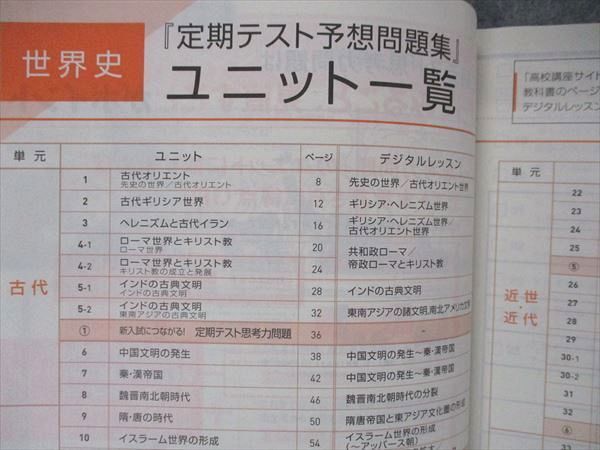 世界史
『定期テスト予想問題集』
ユニット一覧
単元 ユニット ページ デジタルレッスン
古代
1 古代オリエント 8 先史の世界/古代オリエント世界
先史の世界/古代オリエント
2 古代ギリシア世界 12 ギリシア・ヘレニズム世界
3 ヘレニズムと古代イラン 16 ギリシア・ヘレニズム世界/
古代オリエント世界
4-1 ローマ世界とキリスト教 20 共和政ローマ/
ローマ世界
帝政ローマとキリスト教
4-2 ローマ世界とキリスト教 24
キリスト教の成立と発展
5-1 インドの古典文明 28 インドの古典文明
インドの古典文明
5-2 インドの古典文明 32 東南アジアの諸文明,南北アメリカ文
東南アジアの古典文明
① 新入試につながる! 定期テスト思考力問題 36 -
6 中国文明の発生 38 中国文明の発生〜秦・漢帝国
7 秦・漢帝国 42 中国文明の発生〜秦・漢帝国
8 魏晋南北朝時代 46 魏晋南北朝時代の分裂
9 隋・唐の時代 50 隋唐帝国と東アジア文化圏の形成
10 イスラーム世界の形成 54 イスラーム世界の形成
(〜アッバース朝)
「高校講座サイト
教科書のページ
デジタルレッスン
単元
近世
近代
22
23
24
25
⑤
26
27
28
29
30-1
30-2
31
32
⑥
33